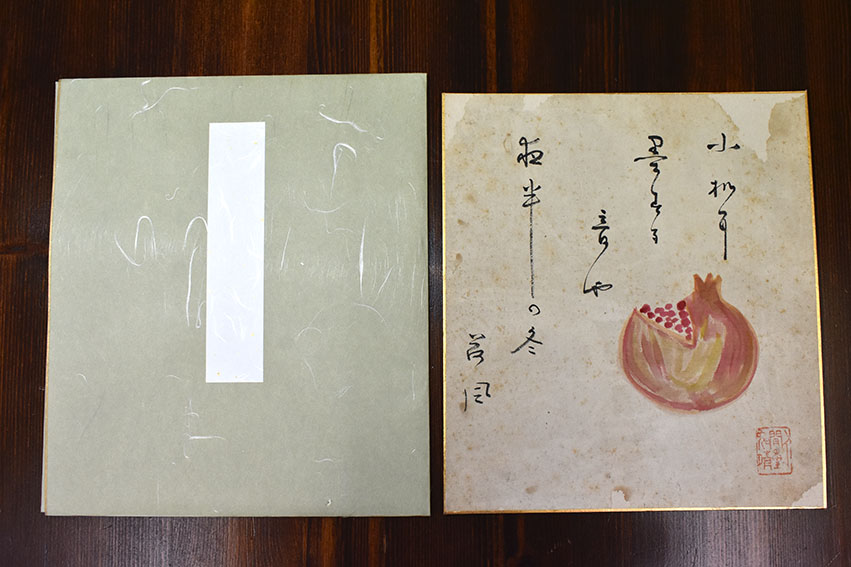 小机に
墨する
音や
夜半の冬
荷風